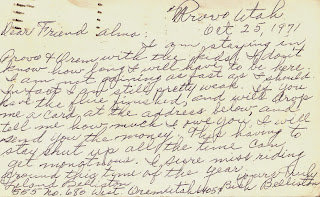 Provo Utah
Oct 25, 1971
Dear Friend Alma:
I am staying in
Provo & Orem, with the kids, I don't
know how long I will have to be here.
I am not gaining as fast as I should.
Infact I am still pretty weak. If you
have the flue finished, and will drop
me a card at the address below and
tell me how much I owe you, I will
send you the money. This having to
stay shut up all the time can
get monotinous. I sure miss riding
around this time of the year.
yours truly
% Leland Bellistón
565 no. 680 West Orem Utah 84057 Bish Belliston